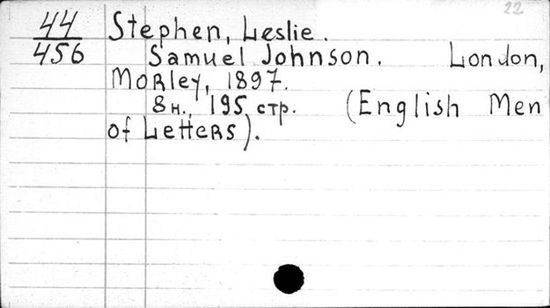 22
44 Stephen, Leslie.
456 Samuel Johnson. London,
Morley, 1897.
8н., 195 стр. (English Men
of Letters).